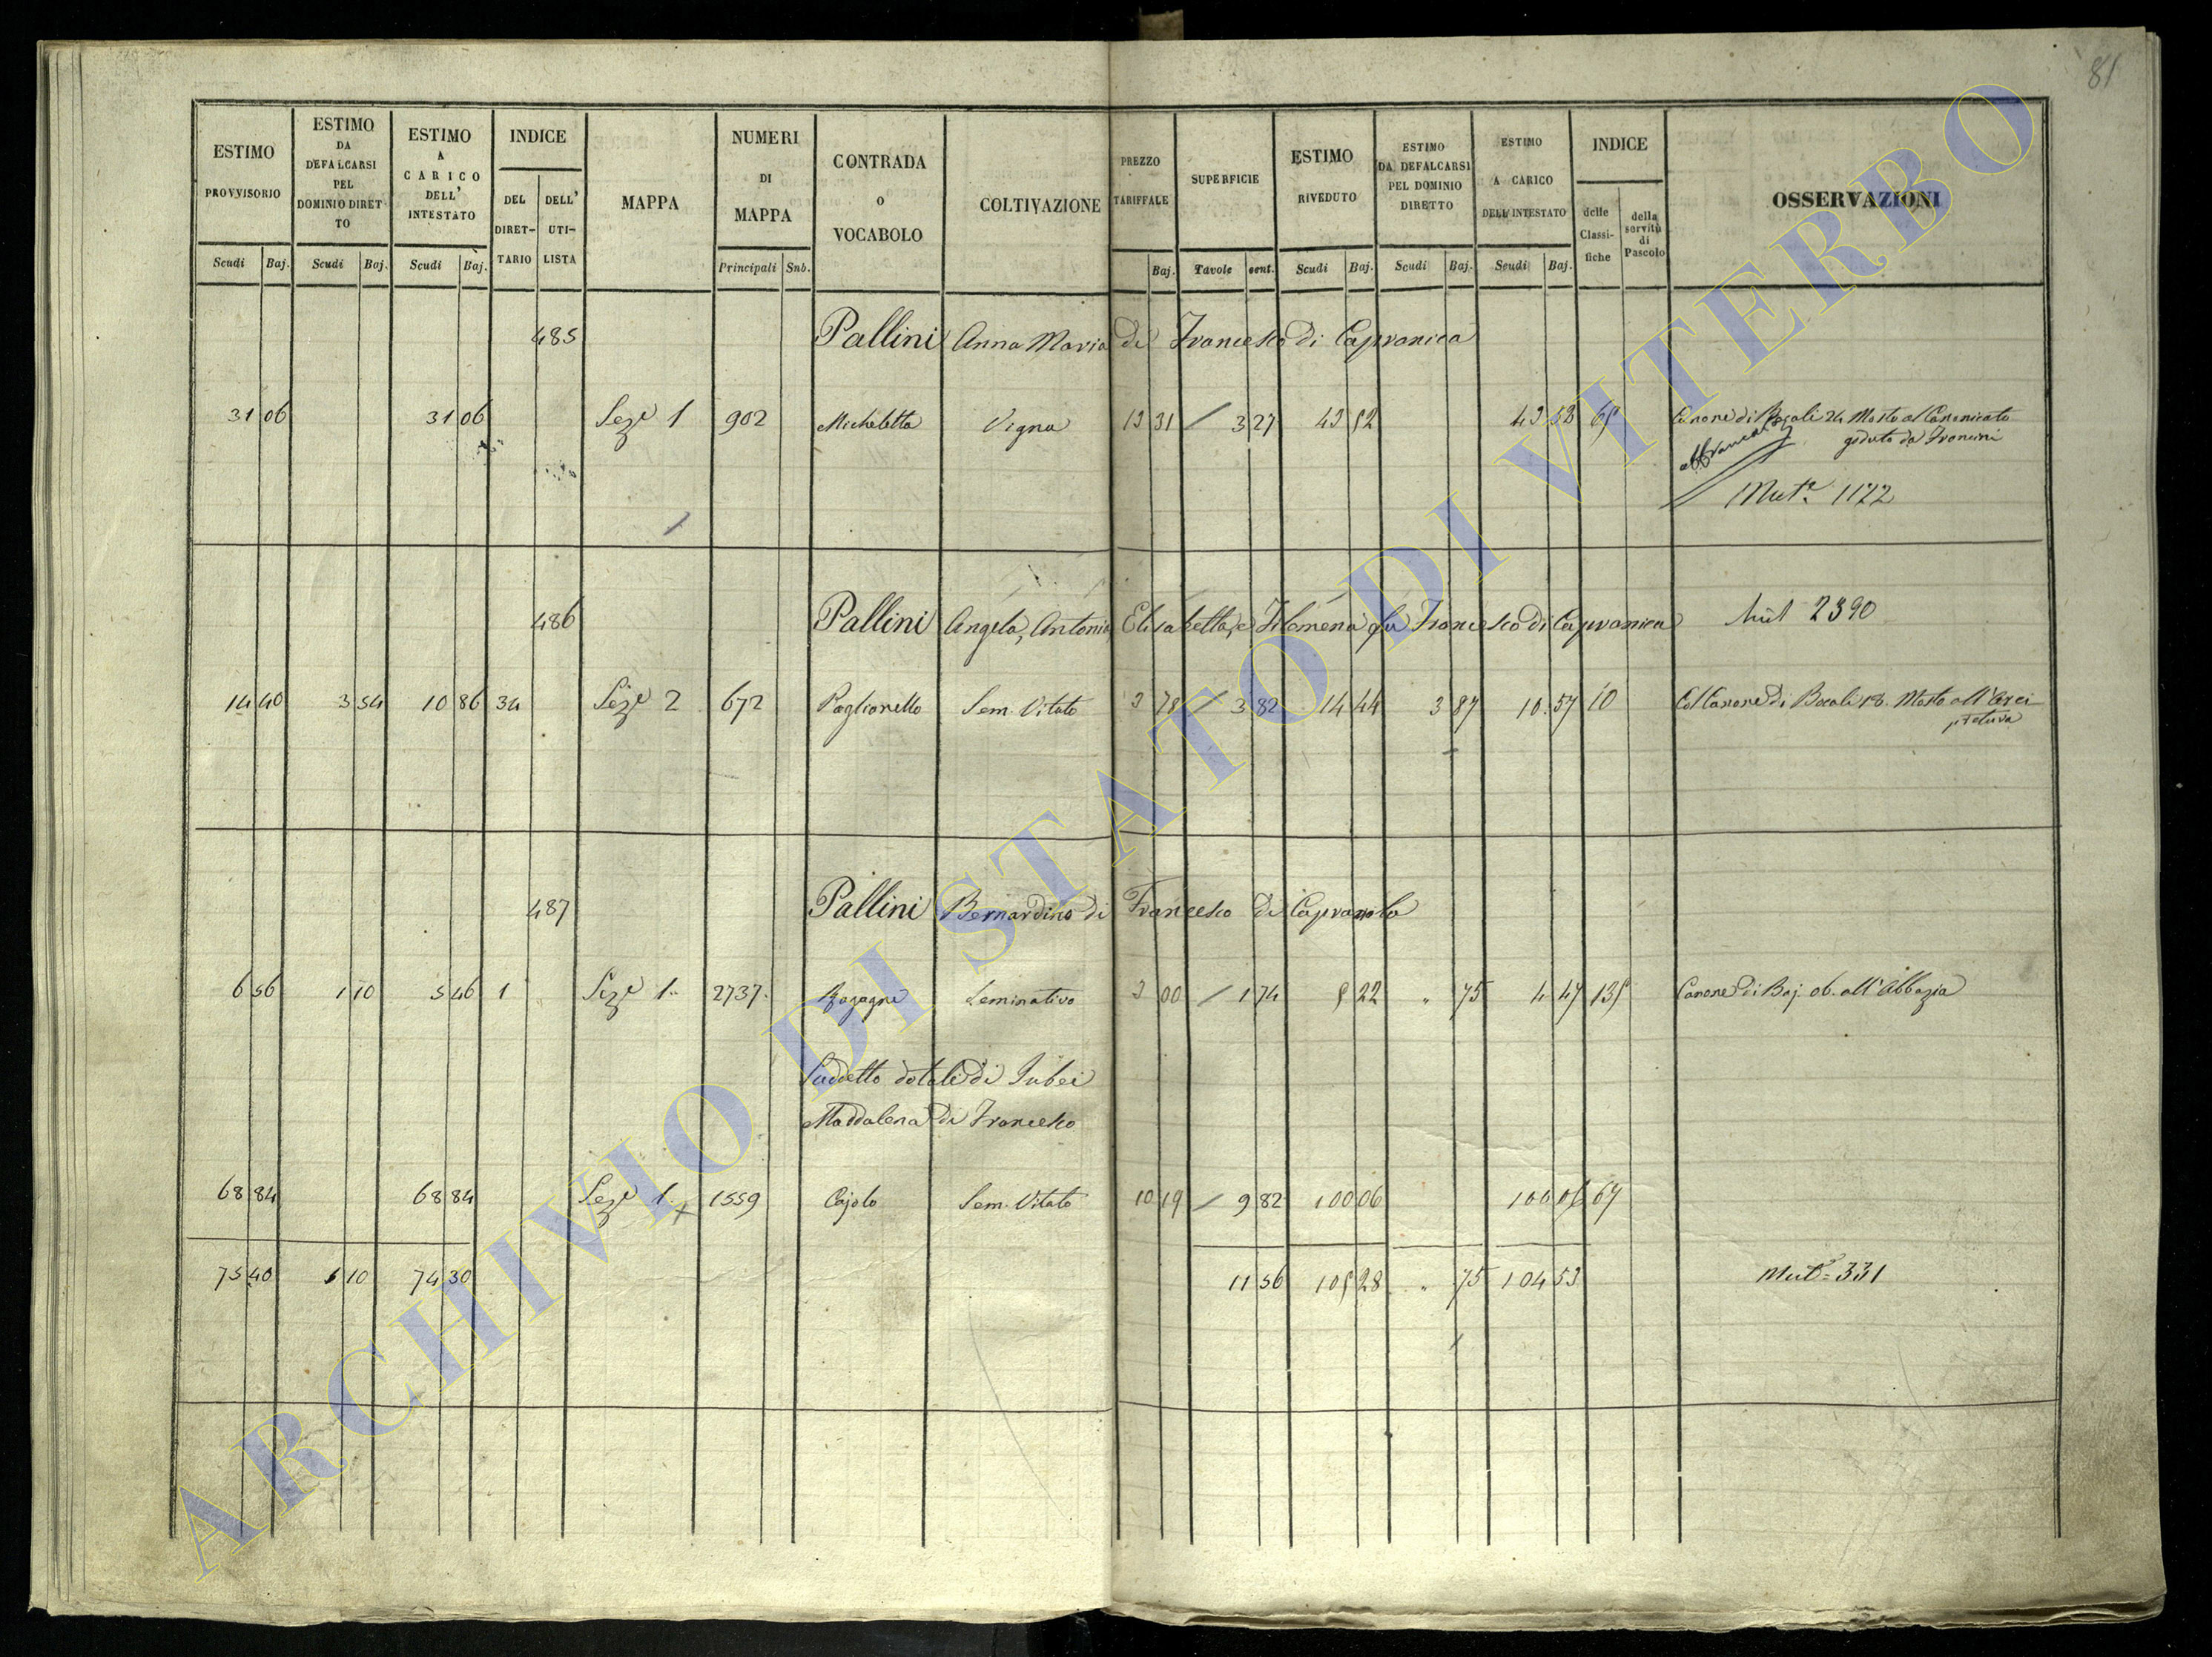 81
ESTIMO PROVVISORIO Scudi Baj.
ESTIMO DA DEFALCARSI PEL DOMINIO DIRETTO Scudi Baj.
ESTIMO A CARICO DELL' INTESTATO Scudi Baj.
INDICE DEL DIRET-TARIO DELL' UTI-LISTA
MAPPA
NUMERI DI MAPPA Principali Sub.
CONTRADA O VOCABOLO
COLTIVAZIONE
PREZZO TARIFFALE Baj.
SUPERFICIE Tavole cent.
ESTIMO RIVEDUTO Scudi Baj.
ESTIMO DA DEFALCARSI PEL DOMINIO DIRETTO Scudi Baj.
ESTIMO A CARICO DELL'INTESTATO Scudi Baj.
INDICE delle Classi-fiche della servitù di Pascolo
OSSERVAZIONI
485 Pallini Anna Maria di Francesco di Capranica
31 06 31 06 Seze 1 902 Micheletta Vigna 13 31 / 3 27 43 52 43 52 65 Canone di Bocali 24 Mosto al Canonicato
goduto da Francini
affrancato
Muta 1122
486 Pallini Angela, Antonia Elisabetta, e Filomena qu Francesco di Capranica Mut 2390
14 40 3 54 10 86 34 Seze 2 672 Paglionetto Sem. Vitato 3 78 / 3 82 14 44 3 87 10 57 10 Col Canone di Bocali 18. Mosto all'Arci
pretura
487 Pallini Bernardino di Francesco di Capranola
6 56 1 10 5 46 1 Seze 1 2737 Seminativo 3 00 / 1 74 5 22 " 75 4 47 135 Canone di Baj. 06. all'Abbazia
Suddetto dotale di Jubei
Maddalena di Francesco
68 84 68 84 Seze 1 1559 Cajolo Sem. Vitato 10 19 / 9 82 100 06 100 06 67
75 40 1 10 74 30 11 56 105 28 " 75 104 53 Muta 331
ARCHIVIO DI STATO DI VITERBO